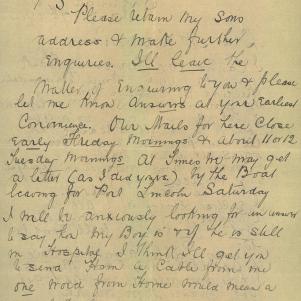 P.S.
Please return My Sons
address & make further
Enquiries. I'll leave the
Matter of Enquiring to you & please
let me know Answers at your Earliest
Convenience. Our Mails for here Close
Early Friday Mornings & about 11 or 12
Tuesday Mornings. At Times we may get
a letter (as I did yours) by the Boat
leaving for Port Lincoln Saturday
I will be anxiously looking for an answer
to say how My Boy is & if he is still
in Hospital I think I'll get you
to send him a Cable from me
one word from Home would mean a